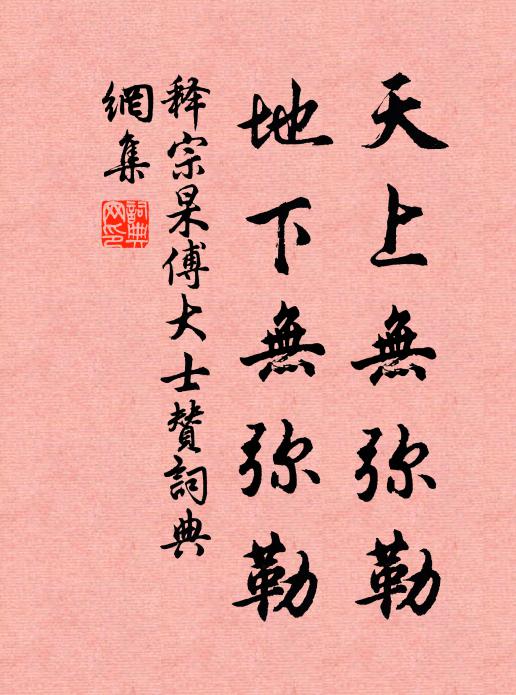 天上無弥勒
地下無弥勒
释宗杲傅大士赞詞典
網集
詞典網印